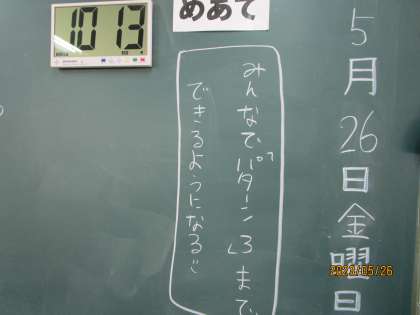 5月26日金曜日
めあて
みんなでパターン3まで、
できるようになる!!
10 13
2023/05/26